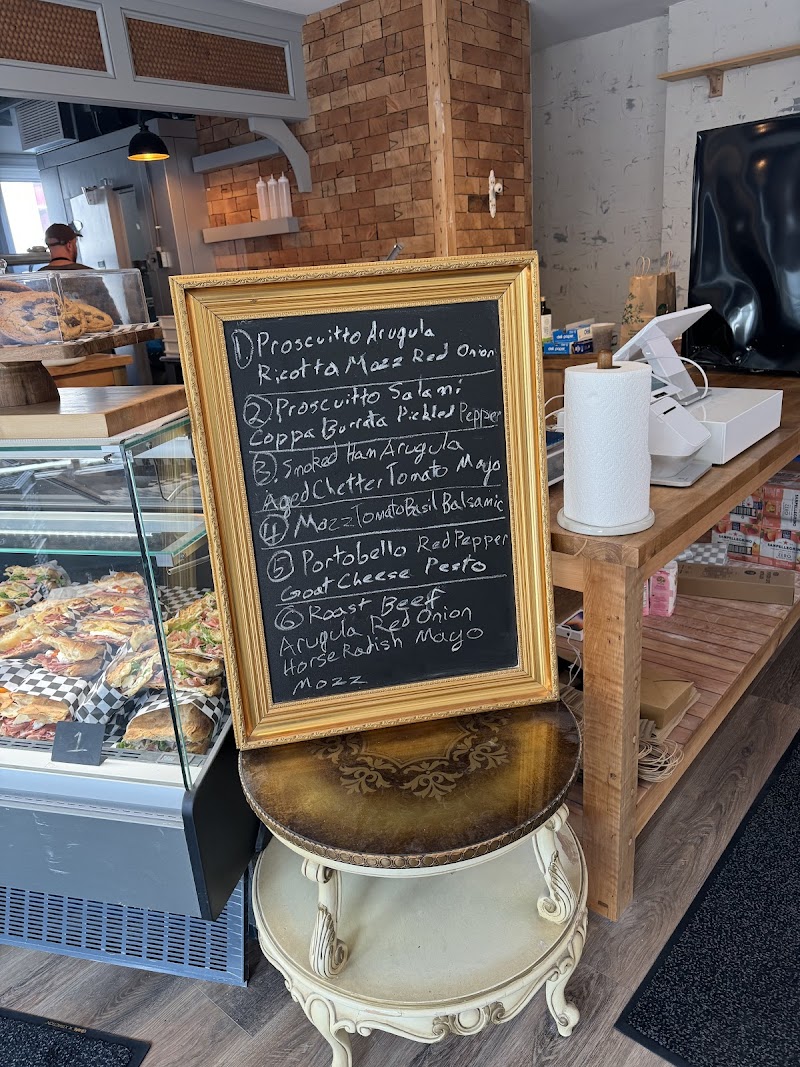 1) Proscuitto Arugula
Ricotta Mozz Red Onion
2 Proscuitto Salami
Coppa Burrata Pickled Pepper
3. Smoked Ham Arugula
Aged Chetter Tomato Mayo
4) Mozz Tomato Basil Balsamic
5 Portobello Red Pepper
Goat Cheese Pesto
6 Roast Beef
Arugula Red Onion
Horse Radish Mayo
Mozz
1
SANPELLEGRINO